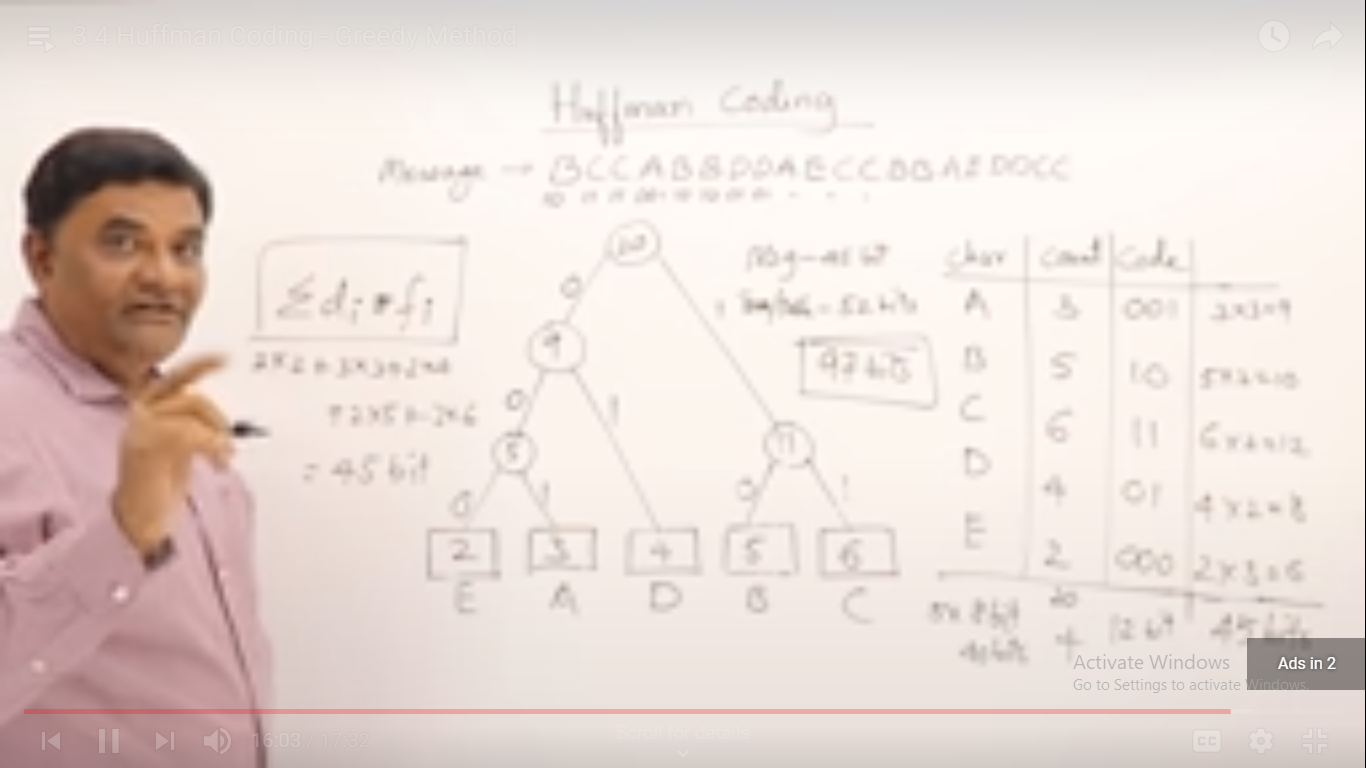 3.4 Huffman Coding - Greedy Method
Huffman Coding
Message → BCCABBDDAECCBBAEDDCC
10 11 11 001 10 10 01 01
Σ di * fi
= 45 bit
20
0
9
0 1
5 11
0 1 0 1
2 3 4 5 6
E A D B C
Msg - 45 bit
52 bits
97 bits
Char Count Code
A 3 001 3x3=9
B 5 10 5x2=10
C 6 11 6x2=12
D 4 01 4x2=8
E 2 000 2x3=6
5x8bit 20 12 bit 45 bits
40 bits +
Activate Windows
Go to Settings to activate Windows.
Ads in 2
16:03 / 17:32
Scroll for details
CC